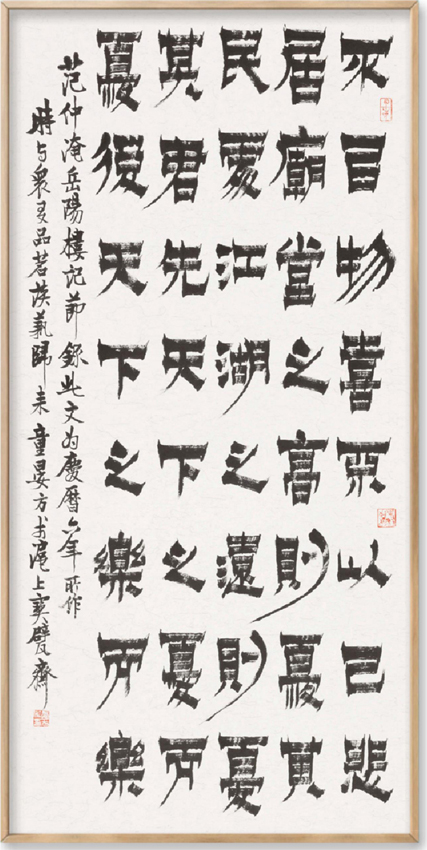 不㠯物喜不以己悲
居廟堂之高則憂其
民處江湖之遠則憂
其君先天下之憂而
憂後天下之樂而樂
范仲淹岳陽樓記節錄此文为慶曆六年所作
時与衆友品茗談藝歸来童晏方於滬上寶甓齋